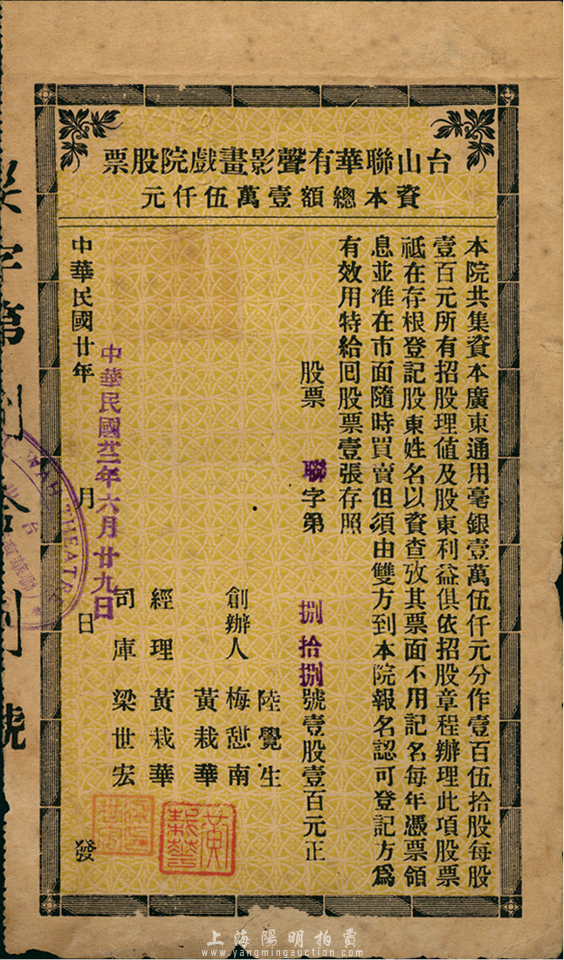 台山聯華有聲影畫戲院股票
資本總額壹萬伍仟元
本院共集資本廣東通用毫銀壹萬伍仟元分作壹百伍拾股每股
壹百元所有招股理值及股東利益俱依招股章程辦理此項股票
祗在存根登記股東姓名以資查攷其票面不用記名每年憑票領
息並准在市面隨時買賣但須由雙方到本院報名認可登記方為
有效用特給回股票壹張存照
股票 聯字第 捌拾捌號壹股壹百元正
創辦人 陸覺生
梅憩南
黃栽華
經理 黃栽華
司庫 梁世宏
中華民國廿年 月 日 發
中華民國廿二年六月廿九日
字第捌拾捌號
THEATRE
上海陽明拍賣
www.yangmingauction.com